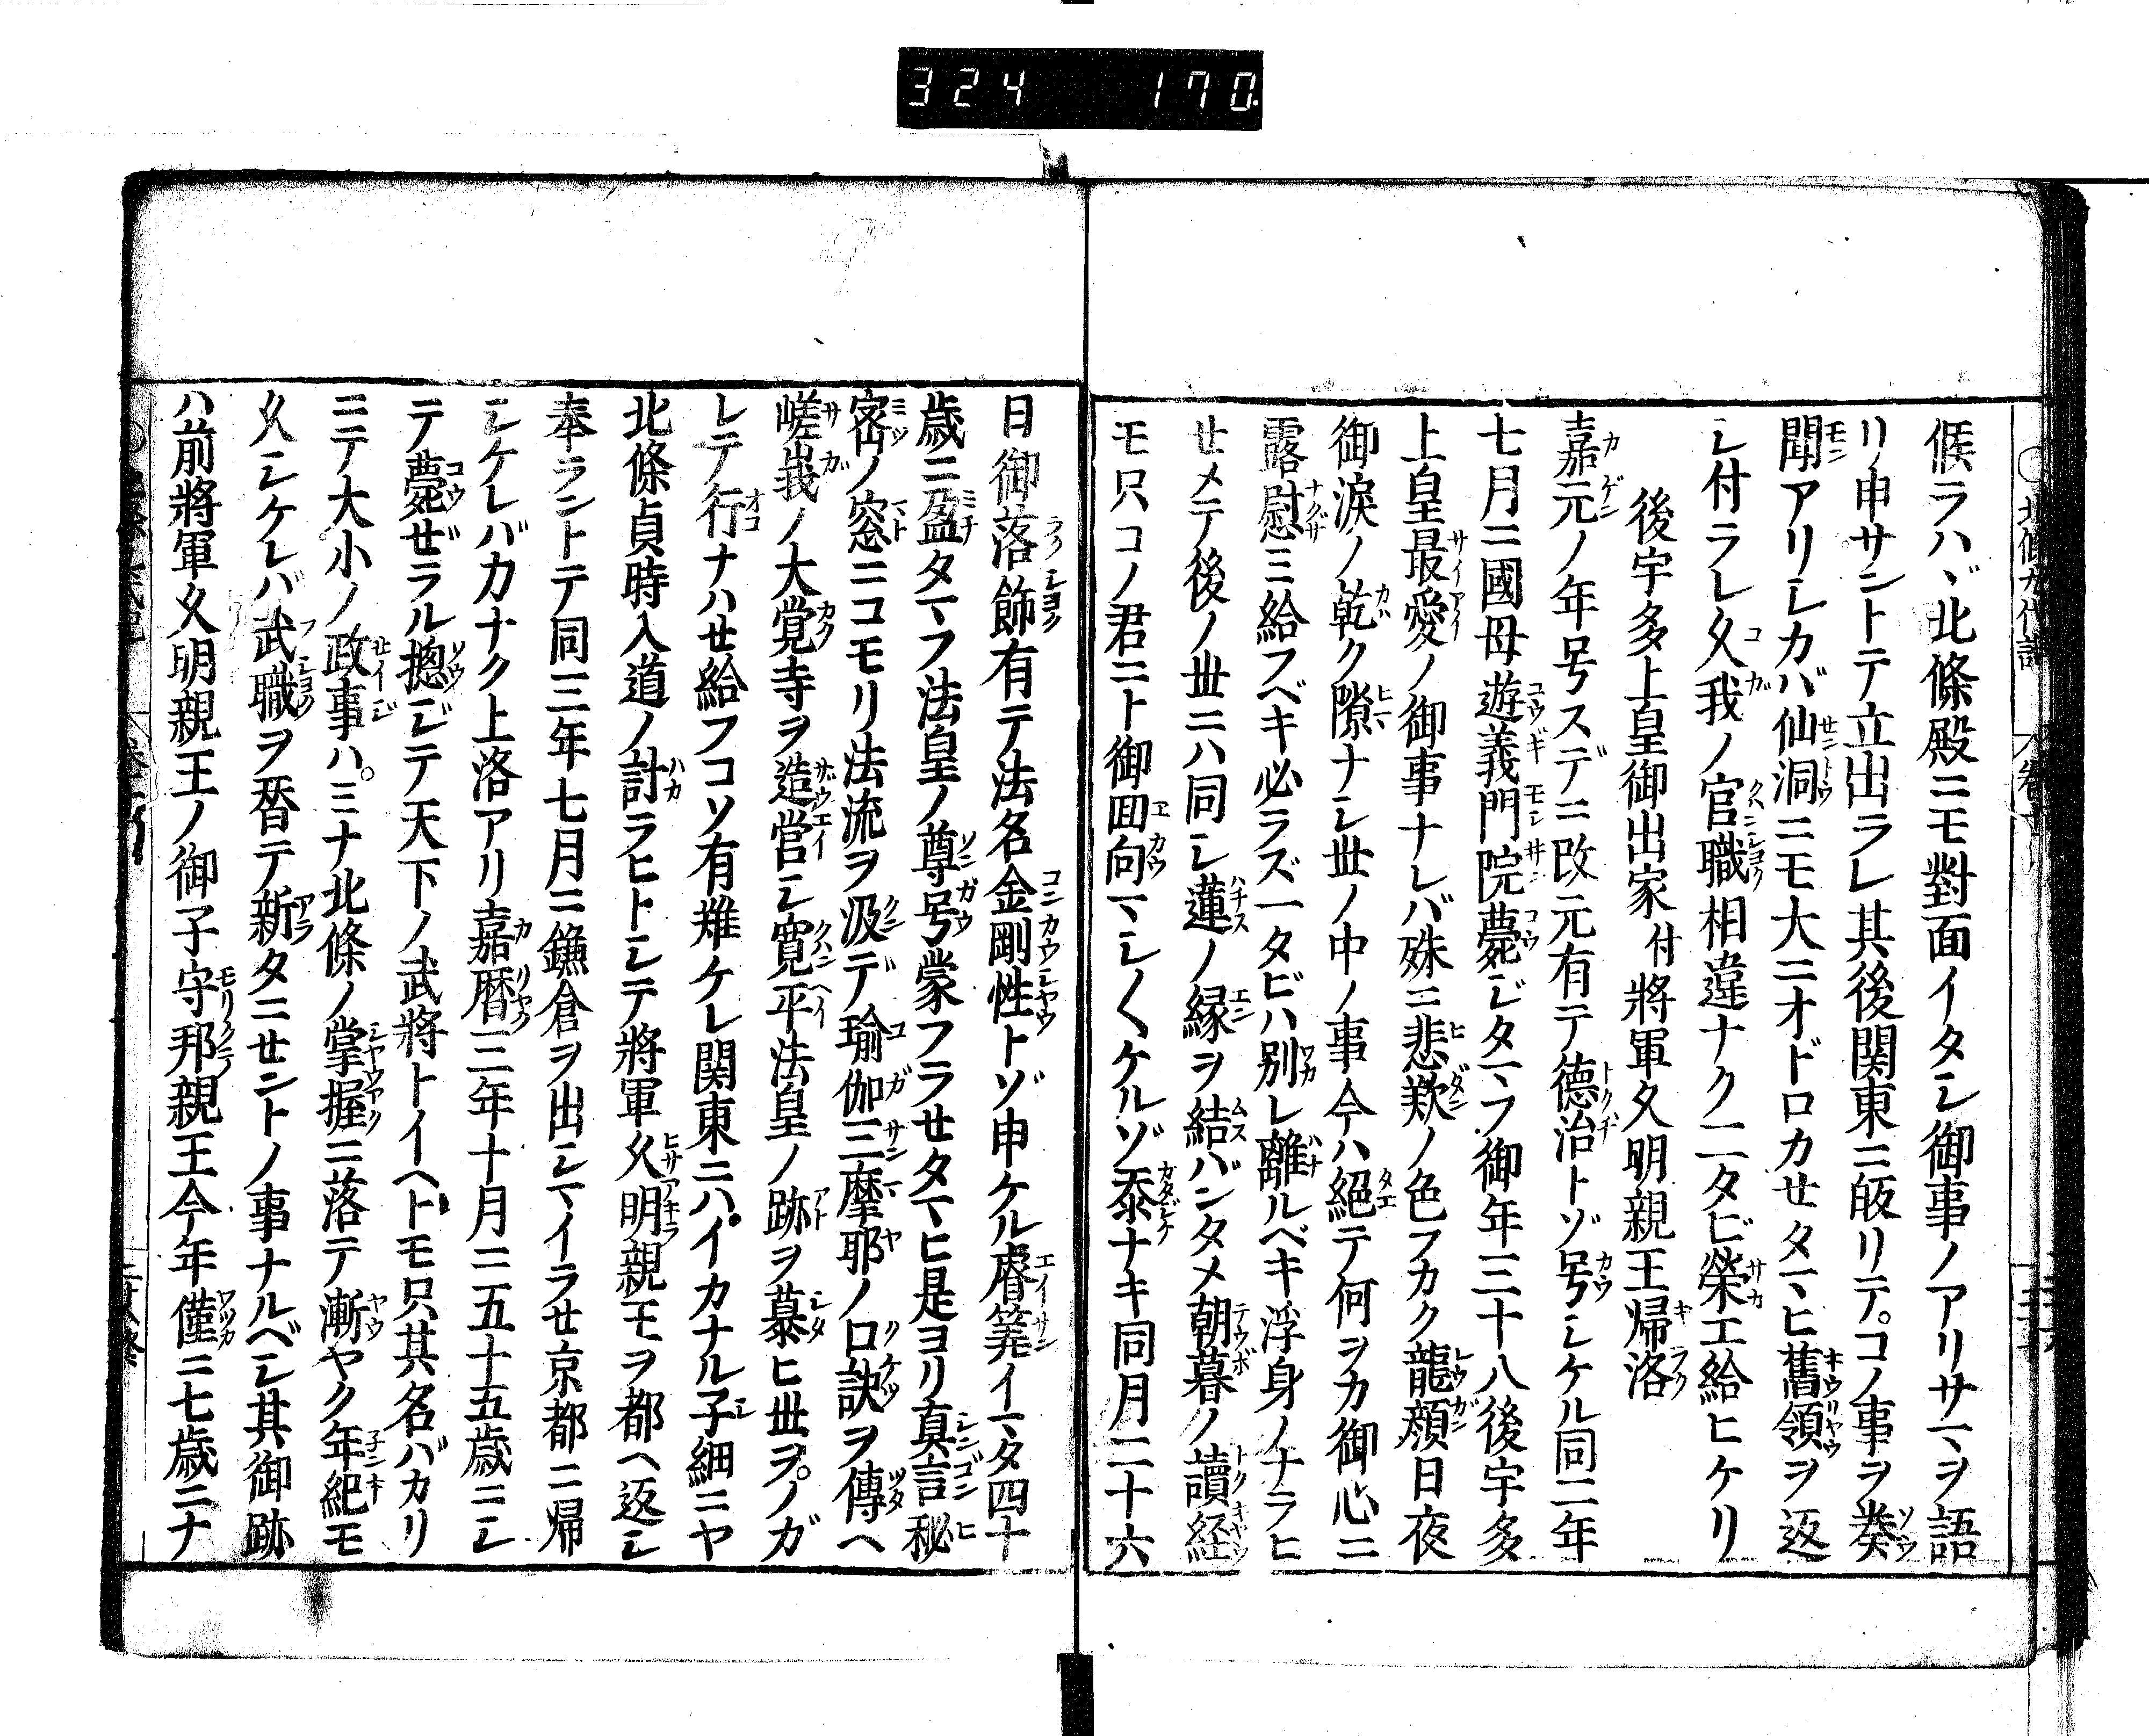 324 170.
候ラハヾ北條殿ニモ對面イタシ御事ノアリサマヲ語
リ申サントテ立出ラレ其後関東ニ皈リテ。コノ事ヲ奏
聞アリシカバ仙洞ニモ大ニオドロカセタマヒ舊領ヲ返
シ付ラレ久我ノ官職相違ナク二タビ榮エ給ヒケリ
後宇多上皇御出家 付 將軍久明親王帰洛
嘉元ノ年号スデニ改元有テ德治トゾ号シケル同二年
七月ニ國母遊義門院薨ジタマフ御年三十八後宇多
上皇最愛ノ御事ナレバ殊ニ悲歎ノ色フカク龍顔日夜
御涙ノ乾ク隙ナシ世ノ中ノ事今ハ絕テ何ヲカ御心ニ
露慰ミ給フベキ必ラズ一タビハ別レ離ルベキ浮身ノナラヒ
せメテ後ノ世ニハ同シ蓮ノ縁ヲ結バンタメ朝暮ノ讀経
モ只コノ君ニト御回向マシ〱ケルゾ忝ナキ同月二十六
日御落飾有テ法名金剛性トゾ申ケル睿筭イマタ四十
歳ニ盈タマフ法皇ノ尊号蒙フラせタマヒ是ヨリ真言秘
密ノ窓ニコモリ法流ヲ汲デ瑜伽三摩耶ノ口訣ヲ傳ヘ
嵯峩ノ大覚寺ヲ造営シ寛平法皇ノ跡ヲ慕ヒ世ヲ。ノガ
レテ行ナハせ給フコソ有難ケレ関東ニハイカナル子細ニヤ
北條貞時入道ノ計ラヒトシテ將軍久明親王ヲ都ヘ返シ
奉ラントテ同三年七月ニ鎌倉ヲ出シマイラせ京都ニ帰
シケレバ力ナク上洛アリ嘉暦三年十月ニ五十五歳ニシ
テ薨ぜラル摠ジテ天下ノ武將トイヘトモ只其名バカリ
ニテ大小ノ政事ハ。ミナ北條ノ掌握ニ落テ漸ヤク年紀モ
久シケレバ武職ヲ替テ新タニせントノ事ナルベシ其御跡
ハ前將軍久明親王ノ御子守邦親王今年僅ニ七歳ニナ